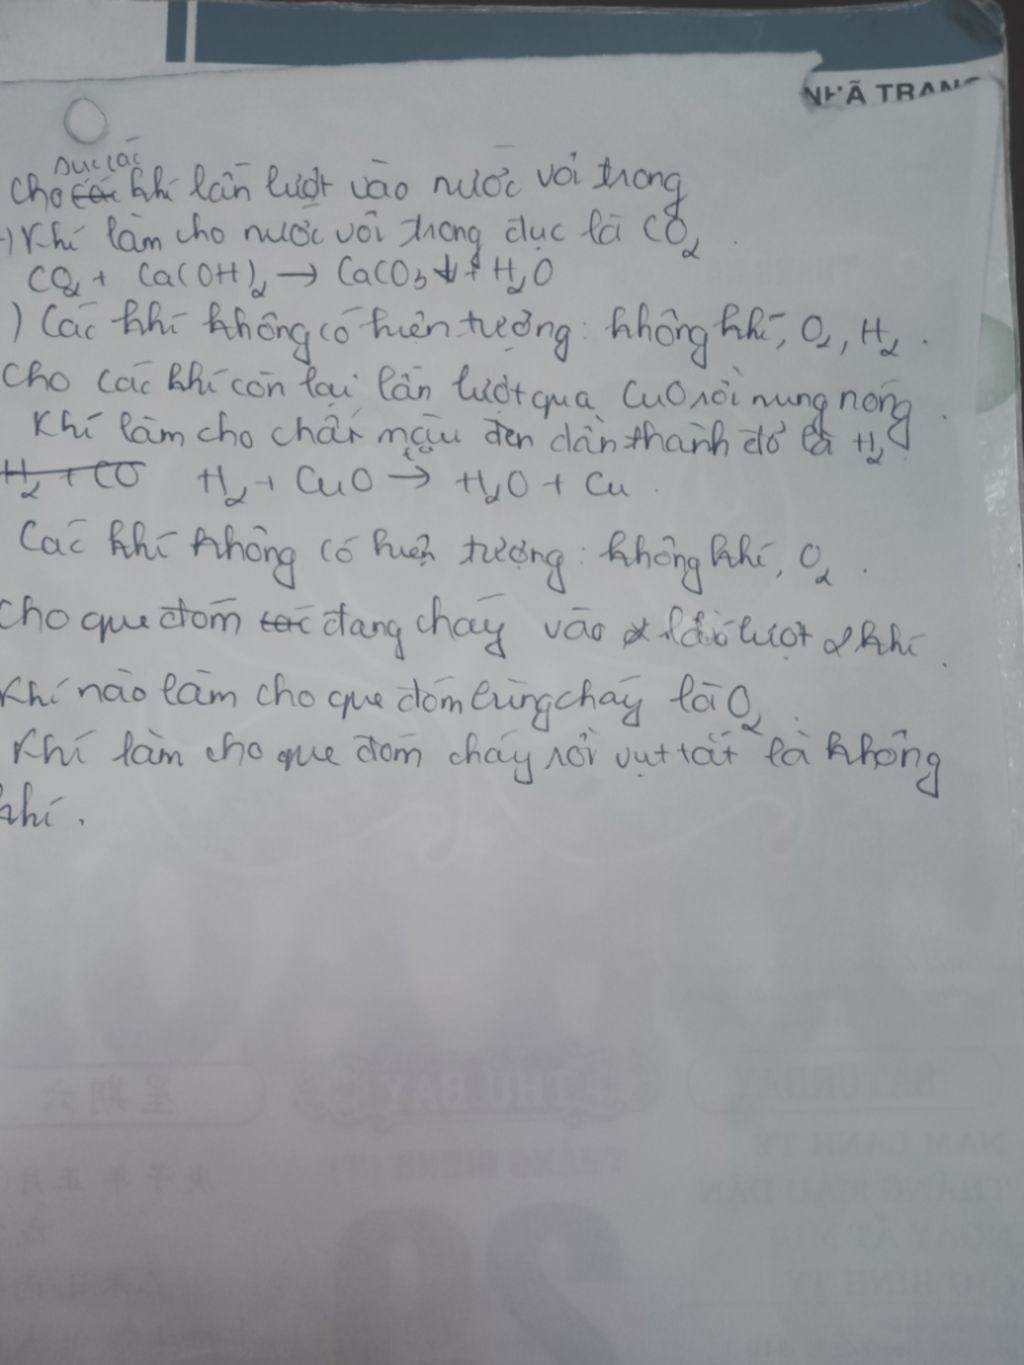 NHÃ TRANG
sục các
Cho các khí lần lượt vào nước vôi trong
-) Khí làm cho nước vôi trong đục là CO₂.
CO₂ + Ca(OH)₂ → CaCO₃↓ + H₂O
) Các khí không có hiện tượng: không khí, O₂, H₂.
Cho các khí còn lại lần lượt qua CuO rồi nung nóng.
Khí làm cho chất màu đen dần thành đỏ là H₂
H₂ + CO H₂ + CuO t° → H₂O + Cu.
Các khí không có hiện tượng: không khí, O₂.
Cho que đóm đang cháy vào lần lượt 2 khí.
Khí nào làm cho que đóm bùng cháy là O₂.
Khí làm cho que đóm cháy rồi vụt tắt là không
khí.
THỨ BẢY
SATURDAY
星期六
NĂM CANH TÝ
THÁNG MẬU DẦN
NGÀY ẤT MÙI